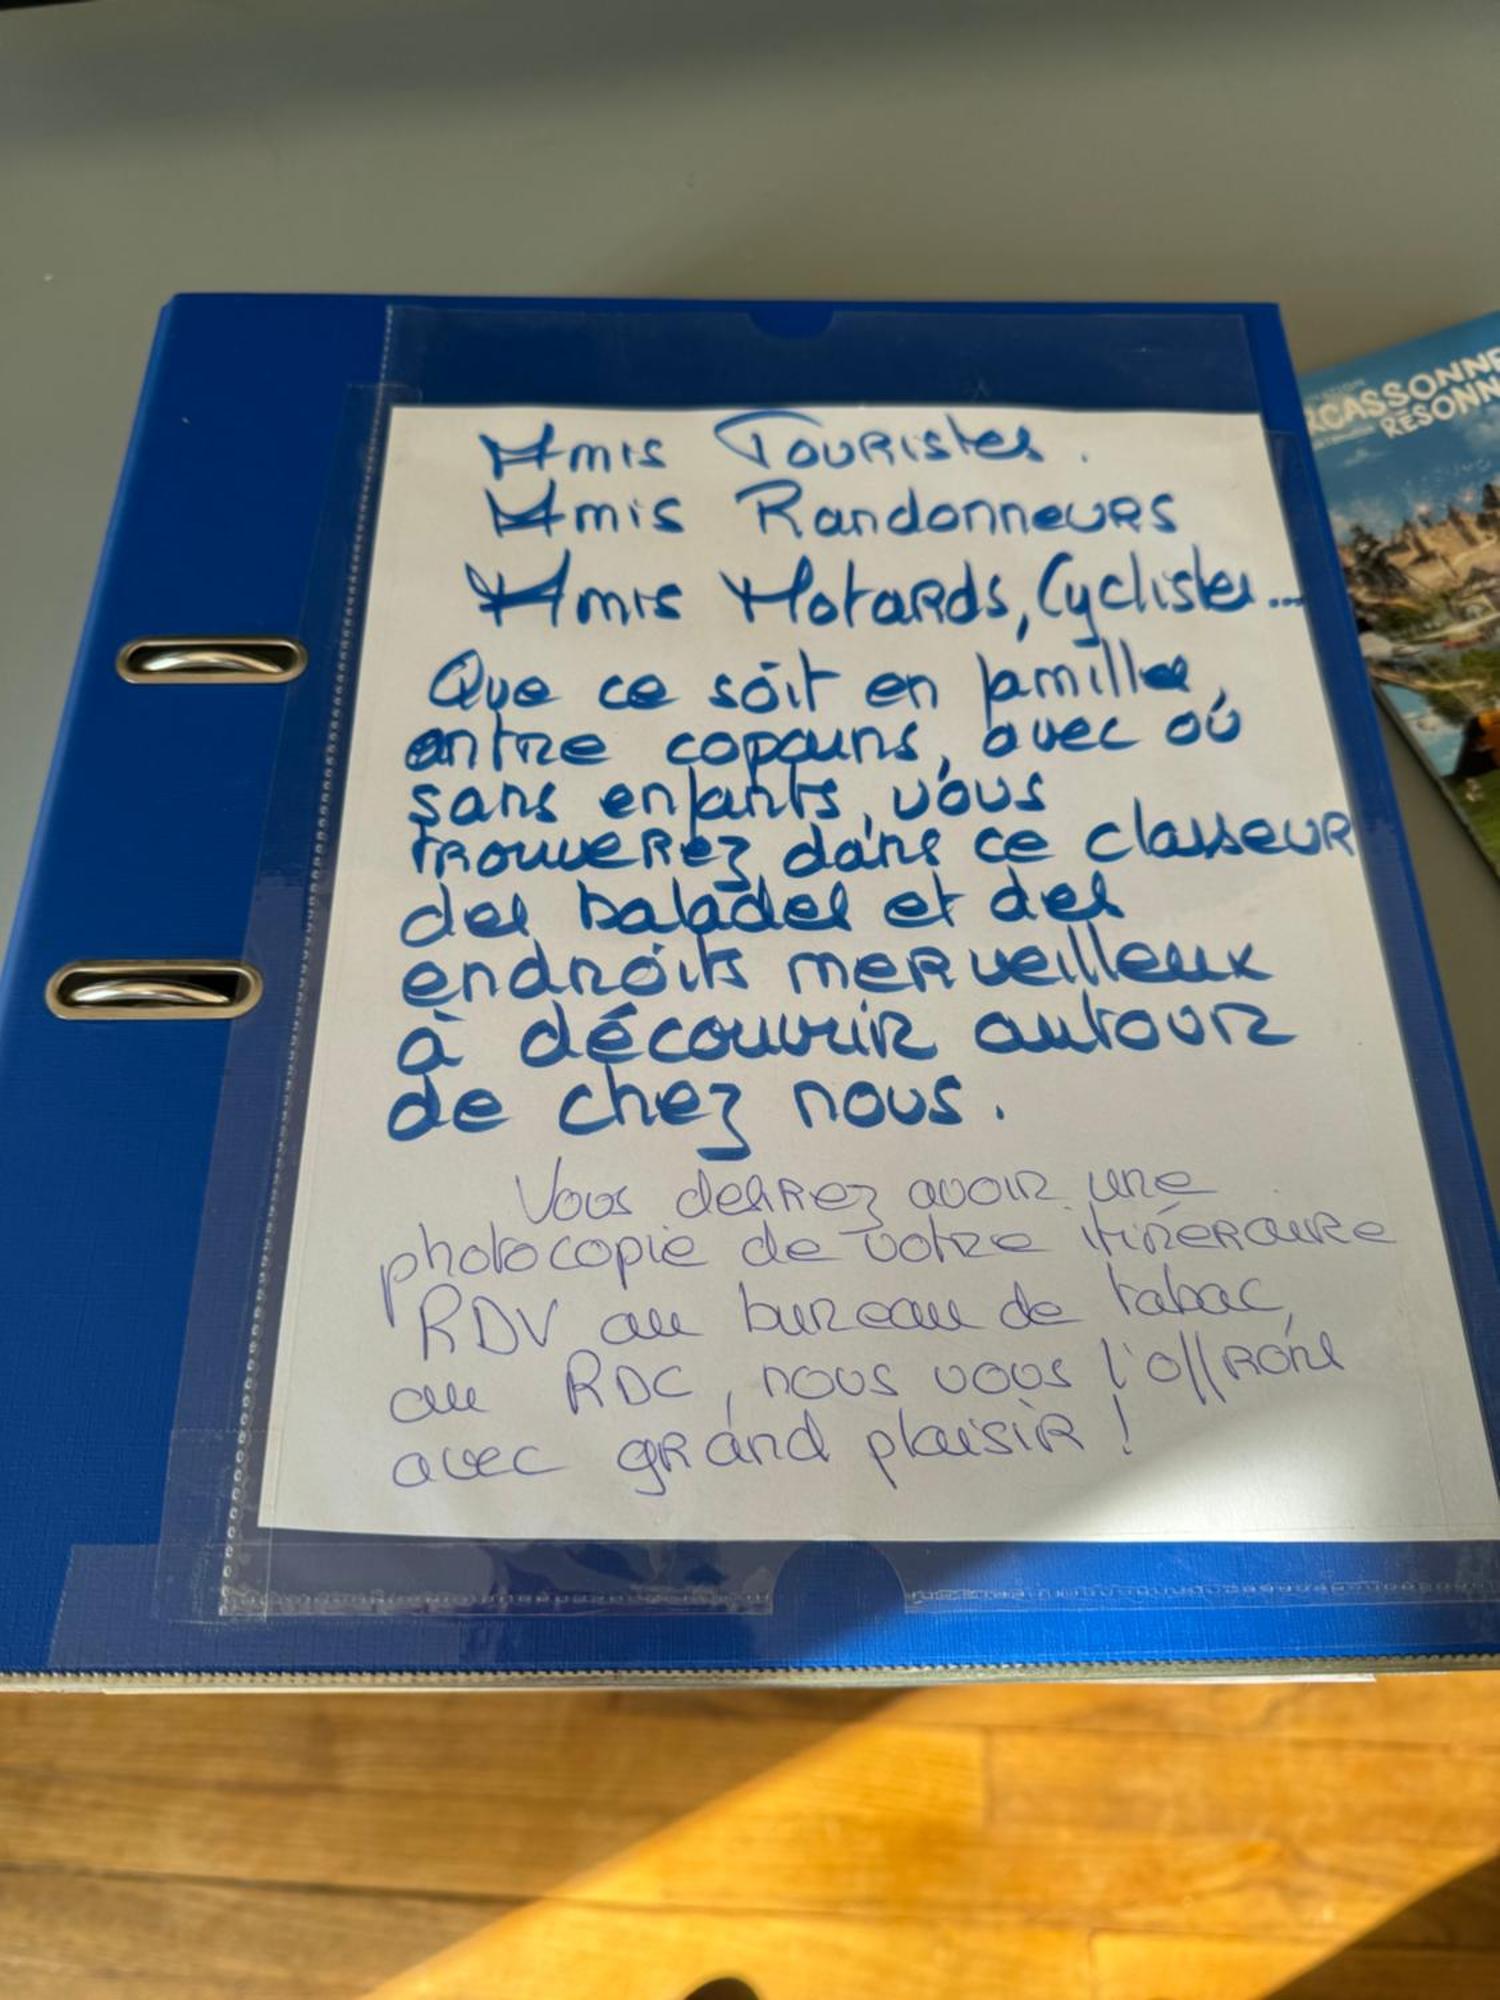 Amis Touristes.
Amis Randonneurs
Amis Motards, Cyclistes...
Que ce soit en famille,
entre copains, avec où
sans enfants, vous
trouverez dans ce classeur
des balades et des
endroits merveilleux
à découvrir autour
de chez nous.
Vous desirez avoir une
photocopie de votre itinéraire
RDV au bureau de tabac,
au RDC, nous vous l'offrons
avec grand plaisir !
RCASSONNE
RÉSONN